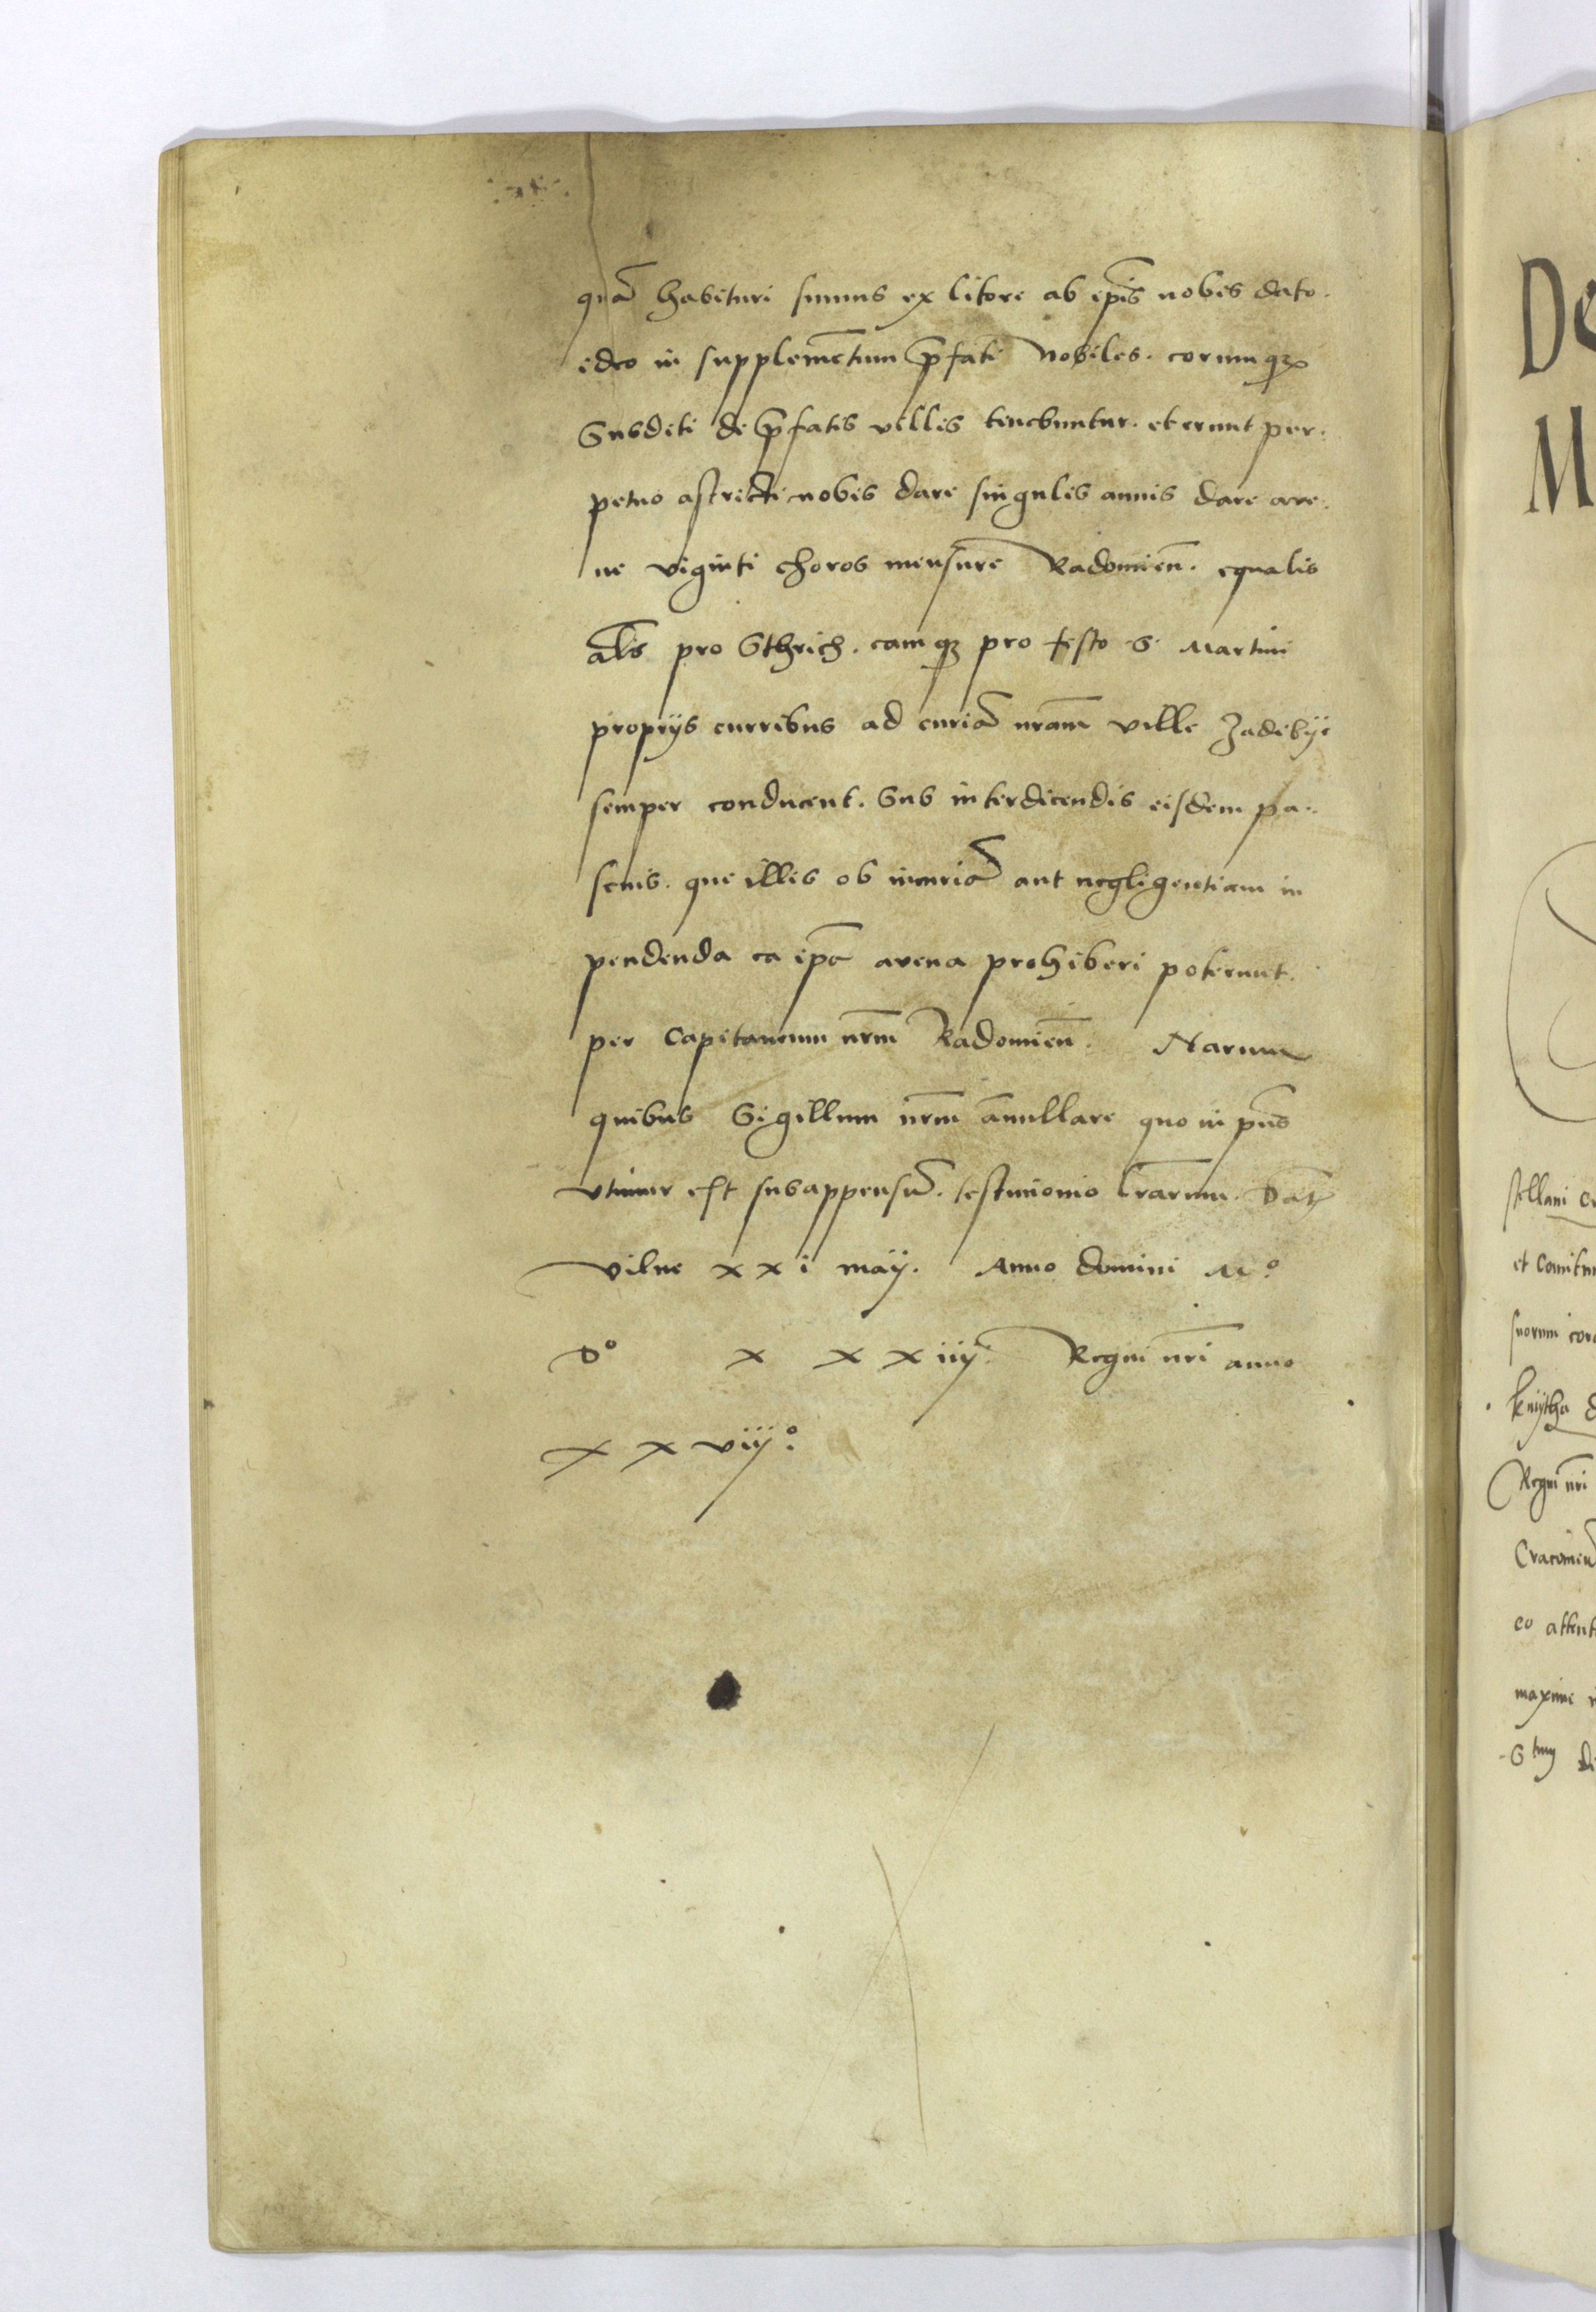 quã habituri sumus ex litore ab ip̃is nobis dato.
ideo in supplemẽtum p̃fati Nobiles. eorumqꝫ
Subditi de p̃fatis villis tenebuntur. et erunt per:
petuo astricti nobis dare singulis annis dare ave:
ne viginti choros mensure Radomieñ. equalis
al̃s pro Sthrich. eamqꝫ pro festo S. Martini
proprijs curribus ad curiã nr̃am ville Zadibije
semper conducent. Sub interdicendis eisdem pa:
scuis. que illis ob incuriã aut negligentiam in
pendenda ea ip̃a avena prohiberi poterunt.
per Capitaneum nr̃m Radomieñ. Harum
quibus Sigillum nr̃m ãnullare quo in pñs
vtimur est subappensũ. testimonio l̃rarum. Dat̃
Vilne xxi maij. Anno domini Mº
Dº x x x iiijº Regni nr̃i anno
x x viijº:
De
M
stellani
et Comitu
suorum
kmytha
Regni nr̃i
maxime